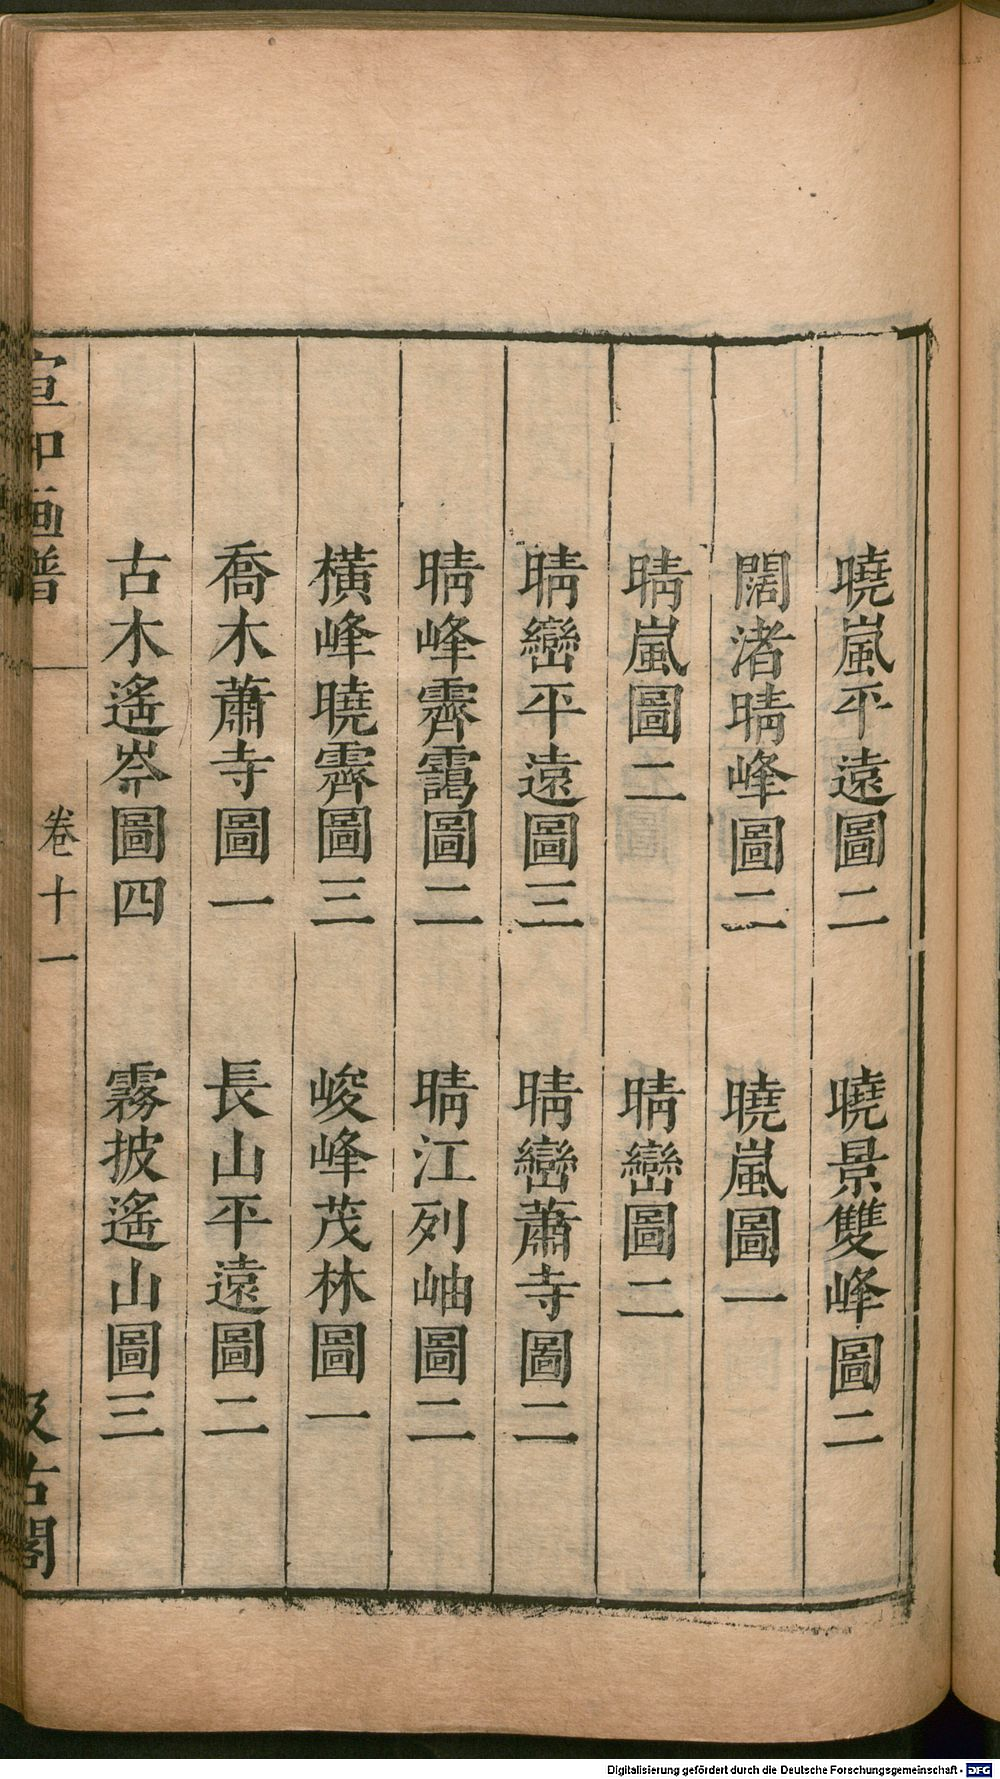 曉嵐平遠圖二　曉景雙峰圖二
闊渚晴峰圖二　曉嵐圖一
晴嵐圖二　晴巒圖二
晴巒平遠圖三　晴巒蕭寺圖二
晴峰霽靄圖二　晴江列岫圖二
橫峰曉霽圖三　峻峰茂林圖一
喬木蕭寺圖一　長山平遠圖二
古木遙岑圖四　霧披遙山圖三
宣和画譜　卷十一　汲古閣
Digitalisierung gefördert durch die Deutsche Forschungsgemeinschaft - DFG